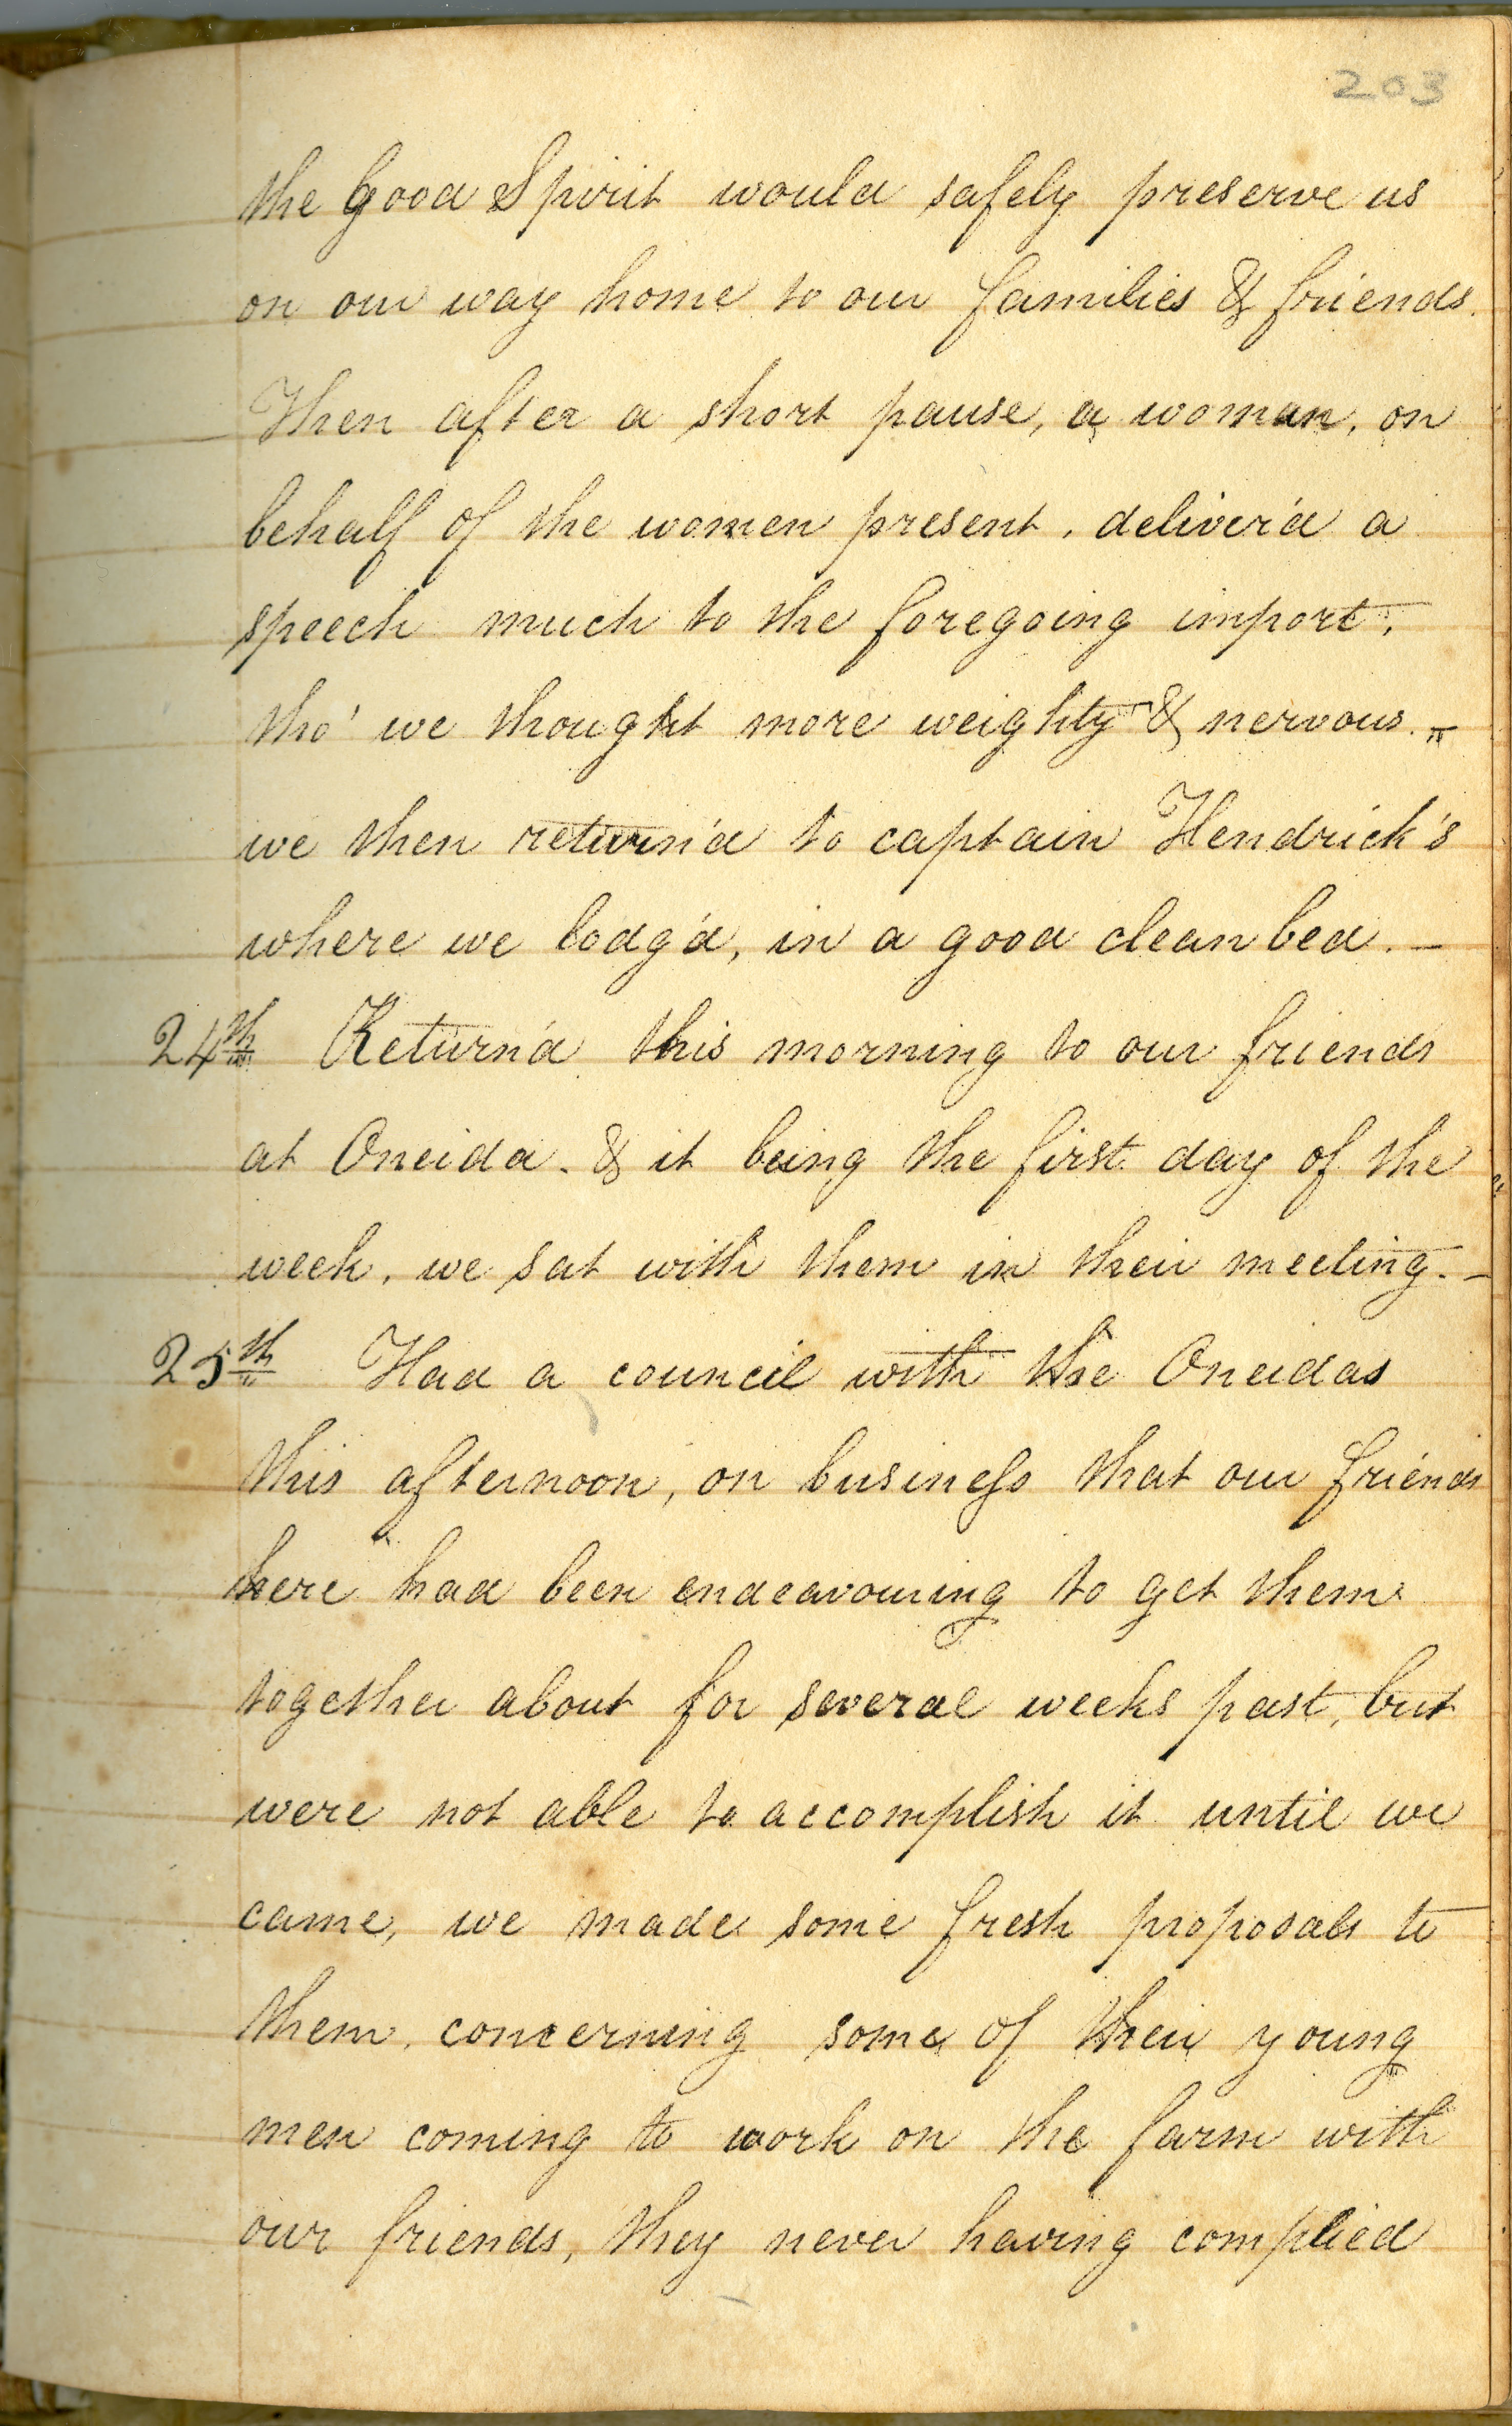 203
the Good Spirit would safely preserve us
on our way home to our families & friends.
Then after a short pause, a woman, on
behalf of the women present, deliver'd a
speech much to the foregoing import,
tho' we thought more weighty & nervous. –
we then return'd to captain Hendrick's
where we lodg'd, in a good clean bed. –
24th Return'd this morning to our friends
at Oneida. & it being the first day of the
week, we sat with them in their meeting. –
25th Had a council with the Oneidas
this afternoon, on business that our friends
here had been endeavouring to get them
together about for several weeks past, but
were not able to accomplish it until we
came, we made some fresh proposals to
them, concerning some of their young
men coming to work on the farm with
our friends, they never having complied